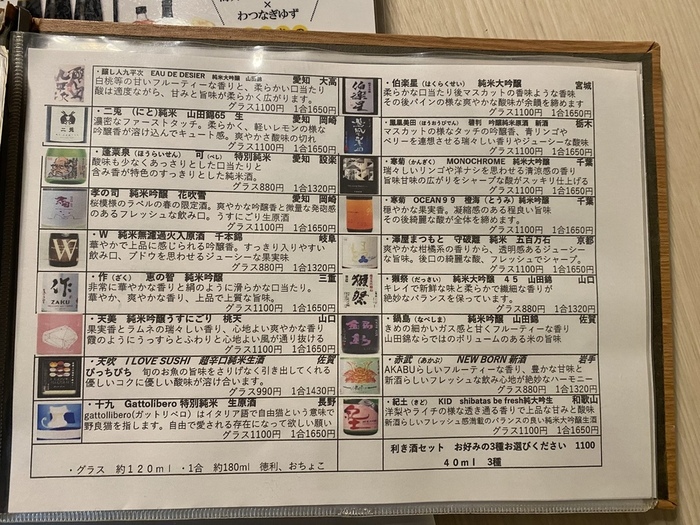 ×
わつなぎゆず
・醸し人九平次 EAU DE DESIER 純米大吟醸 山田錦 愛知 大高
白桃等の甘いフルーティーな香りと、柔らかい口当たり
酸は適度ながら、甘みと旨味が柔らかく広がります。
グラス1100円 1合1650円
・二兎 (にと)純米 山田錦65 生 愛知 岡崎
濃密なファーストタッチ。柔らかく、軽いレモンの様な
吟醸香が溶け込んでキュート感。爽やかさ酸味の切れ
グラス1100円 1合1650円
・蓬莱泉(ほうらいせん) 可(べし) 特別純米 愛知 設楽
酸味も少なくあっさりとした口当たりと
含み香が特色のすっきりとした純米酒。
グラス880円 1合1320円
・孝の司 純米吟醸 花吹雪 愛知 岡崎
桜模様のラベルの春の限定酒。爽やかな吟醸香と微量な発砲感
のあるフレッシュな飲み口。うすにごり生原酒
グラス1100円 1合1650円
・W 純米無濾過火入原酒 千本錦 岐阜
華やかで上品に感じられる吟醸香。すっきり入りやすい
飲み口、ブドウを思わせるジューシーな果実味
グラス880円 1合1320円
・作(ざく) 恵の智 純米吟醸 三重
非常に華やかな香りと絹のように滑らかな口当たり。
華やか、爽やかな香り、上品で上質な旨味。
グラス1100円 1合1650円
・天美 純米吟醸うすにごり 桃天 山口
果実香とラムネの瑞々しい香り、心地よい爽やかな香り
霞のようにうっすらとふわりと心地よい風が通り抜ける
グラス1100円 1合1650円
・天吹 I LOVE SUSHI 超辛口純米生酒 佐賀
ぴっちぴち 旬のお魚の旨味をさりげなく引き出してくれる
優しいコクに優しい酸味が溶け合います。
グラス990円 1合1430円
・十九 Gattolibero 特別純米 生原酒 長野
gattolibero(ガットリベロ)はイタリア語で自由猫という意味で
野良猫を指します。自由で愛される存在になって欲しい願い
グラス1100円 1合1650円
・グラス 約120ml ・1合 約180ml 徳利、おちょこ
・伯楽星(はくらくせい) 純米大吟醸 宮城
柔らかな口当たり後マスカットの香味ような香味
その後パインの様な爽やかな酸味が余韻を締めます
グラス1100円 1合1650円
・鳳凰美田(ほうおうびでん) 碧判 吟醸純米原酒 新酒 栃木
マスカットの様なタッチの吟醸香、青リンゴや
ベリーを連想させる瑞々しい香りやジューシーな酸味
グラス1100円 1合1650円
・寒菊(かんぎく) MONOCHROME 純米大吟醸 千葉
瑞々しいリンゴや洋ナシを思わせる清涼感の香り
旨味甘味の広がりをシャープな酸がスッキリ仕上げる
グラス1100円 1合1650円
・寒菊 OCEAN99 橙海(とうみ)純米吟醸 千葉
穏やかな果実香。凝縮感のある程良い旨味
その後綺麗な酸が全体を締めます。
グラス1100円 1合1650円
・澤屋まつもと 守破離 純米 五百万石 京都
爽やかな柑橘系の香りから、透明感あるジューシー
な旨味。後口の綺麗な酸、フレッシュでシャープ。
グラス1100円 1合1650円
・獺祭(だっさい) 純米大吟醸 45 山田錦 山口
キレイで新鮮な味と柔らかで繊細な香りが
絶妙なバランスを保っています。
グラス880円 1合1320円
・鍋島(なべしま) 純米吟醸 山田錦 佐賀
きめの細かいガス感と甘くフルーティーな香り
山田錦ならではのボリュームのある米の旨味
グラス1100円 1合1650円
・赤武(あかぶ) NEW BORN 新酒 岩手
AKABUらしいフルーティーな香り、豊かな甘味と
新酒らしいフレッシュな飲み心地が絶妙なハーモニー
グラス880円 1合1320円
・紀土(きど) KID shibatas be fresh純大吟生 和歌山
洋梨やライチの様な透き通る香りで上品な甘みと酸味
新酒らしいフレッシュ感満載のバランスの良い純米大吟醸生酒
グラス1100円 1合1650円
利き酒セット お好みの3種お選びください 1100
40ml 3種